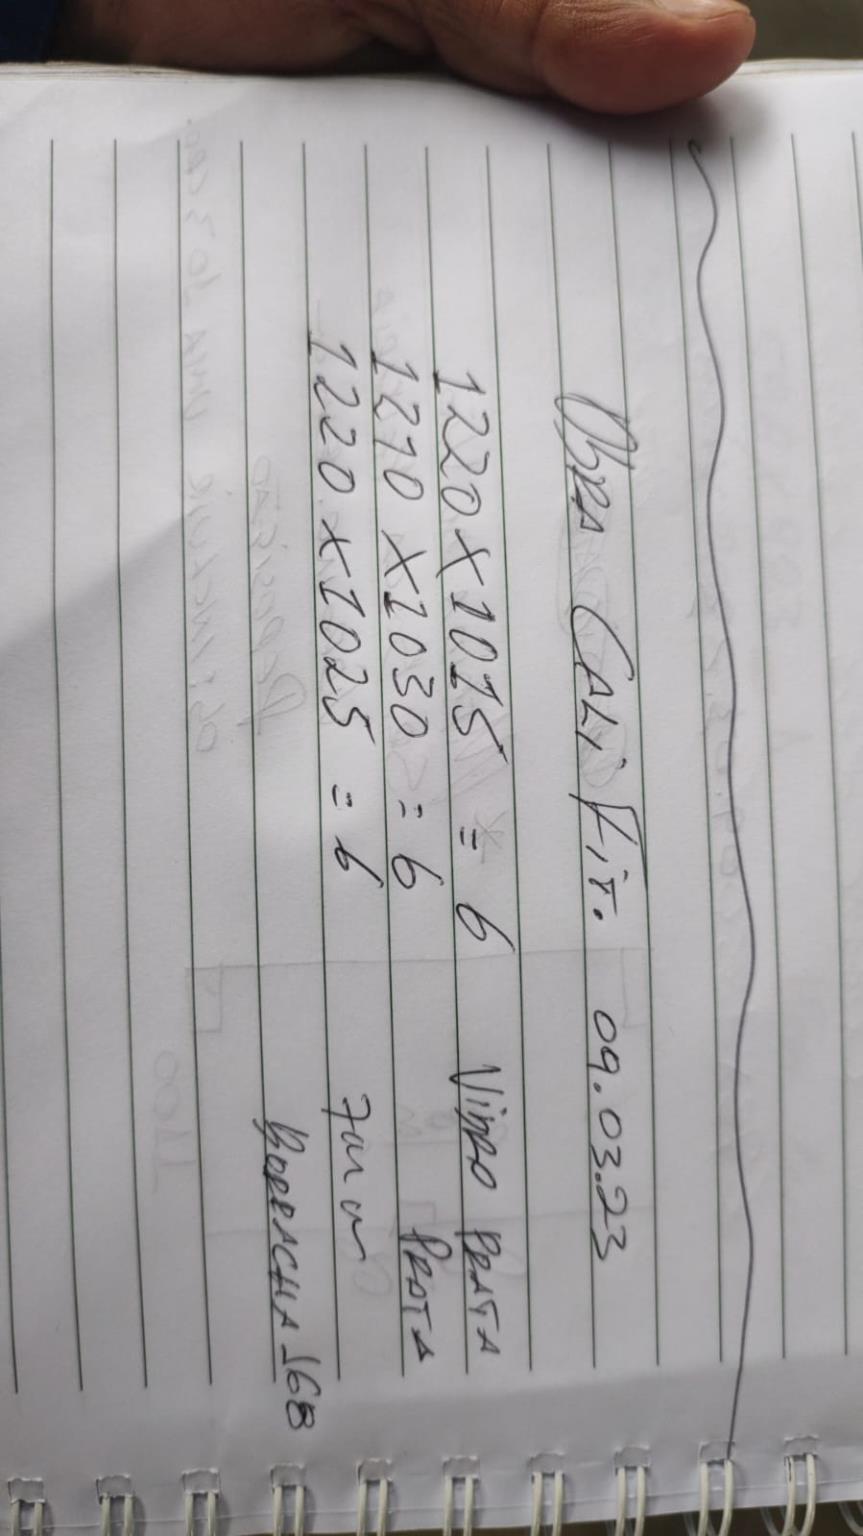 Obra CALiFit. 09.03.23
1220 x 1015 = 6 Vidro PRATA
1210 x 1030 = 6 PRATA
1220 x 1025 = 6
BORRACHA - 168